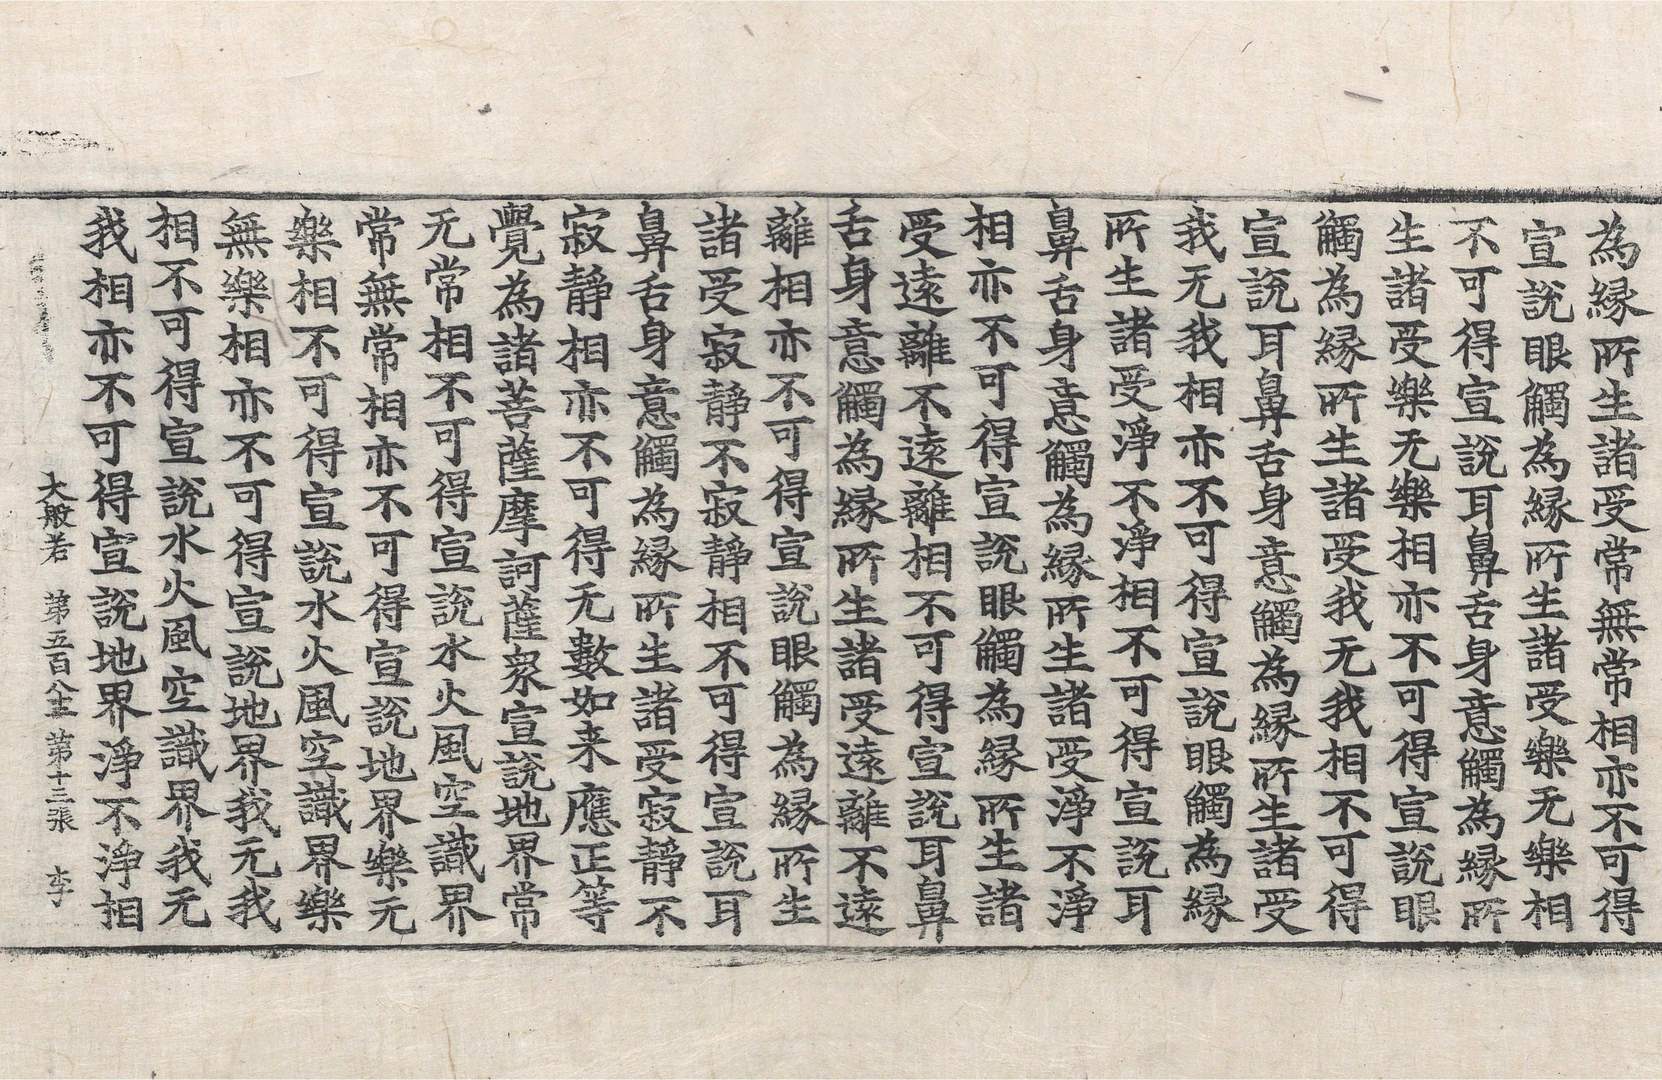 為縁所生諸受常無常相亦不可得
宣說眼觸為縁所生諸受樂无樂相
不可得宣說耳鼻舌身意觸為縁所
生諸受樂无樂相亦不可得宣說眼
觸為縁所生諸受我无我相不可得
宣說耳鼻舌身意觸為縁所生諸受
我无我相亦不可得宣說眼觸為縁
所生諸受淨不淨相不可得宣說耳
鼻舌身意觸為縁所生諸受淨不淨
相亦不可得宣說眼觸為縁所生諸
受遠離不遠離相不可得宣說耳鼻
舌身意觸為縁所生諸受遠離不遠
離相亦不可得宣說眼觸為縁所生
諸受寂靜不寂靜相不可得宣說耳
鼻舌身意觸為縁所生諸受寂靜不
寂靜相亦不可得无數如来應正等
覺為諸菩薩摩訶薩衆宣說地界常
无常相不可得宣說水火風空識界
常無常相亦不可得宣說地界樂无
樂相不可得宣說水火風空識界樂
無樂相亦不可得宣說地界我无我
相不可得宣說水火風空識界我无
我相亦不可得宣說地界淨不淨相
大般若 第五百八十三 第十三張 李